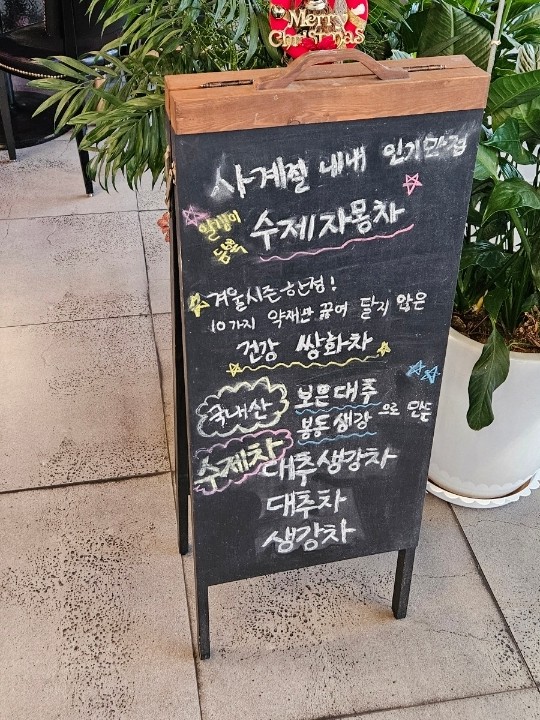 Merry
Christmas
사계절 내내 인기만점
알갱이
듬뿍
수제자몽차
겨울시즌 한정!
10가지 약재만 끓여 달지 않은
건강 쌍화차
국내산
보은대추
봉동생강
으로 만든
수제차
대추생강차
대추차
생강차